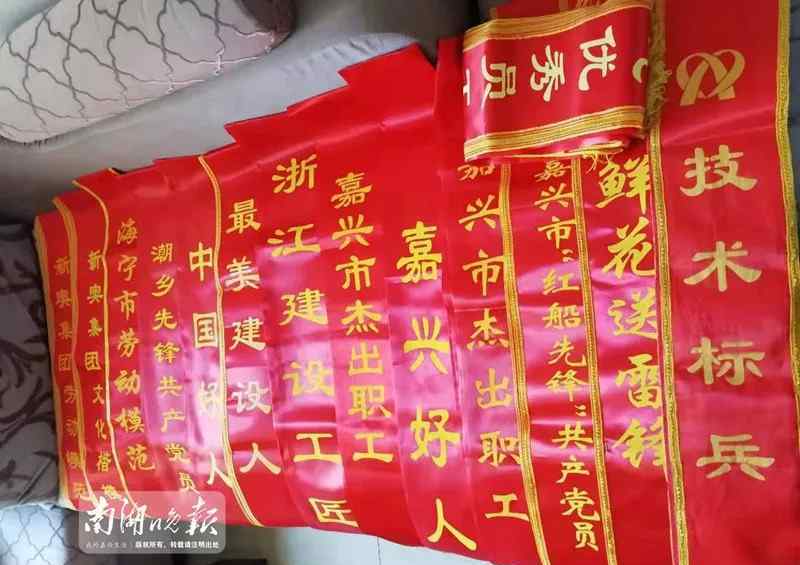 新奥集团劳动模范
新奥集团文化楷模
海宁市劳动模范
潮乡先锋共产党员
中国好人
最美建设人
浙江建设工匠
嘉兴市杰出职工
嘉兴好人
嘉兴市杰出职工
嘉兴市“红船先锋”共产党员
鲜花送雷锋
技术标兵
优秀员
南湖晚报
版权所有，转载请注明出处